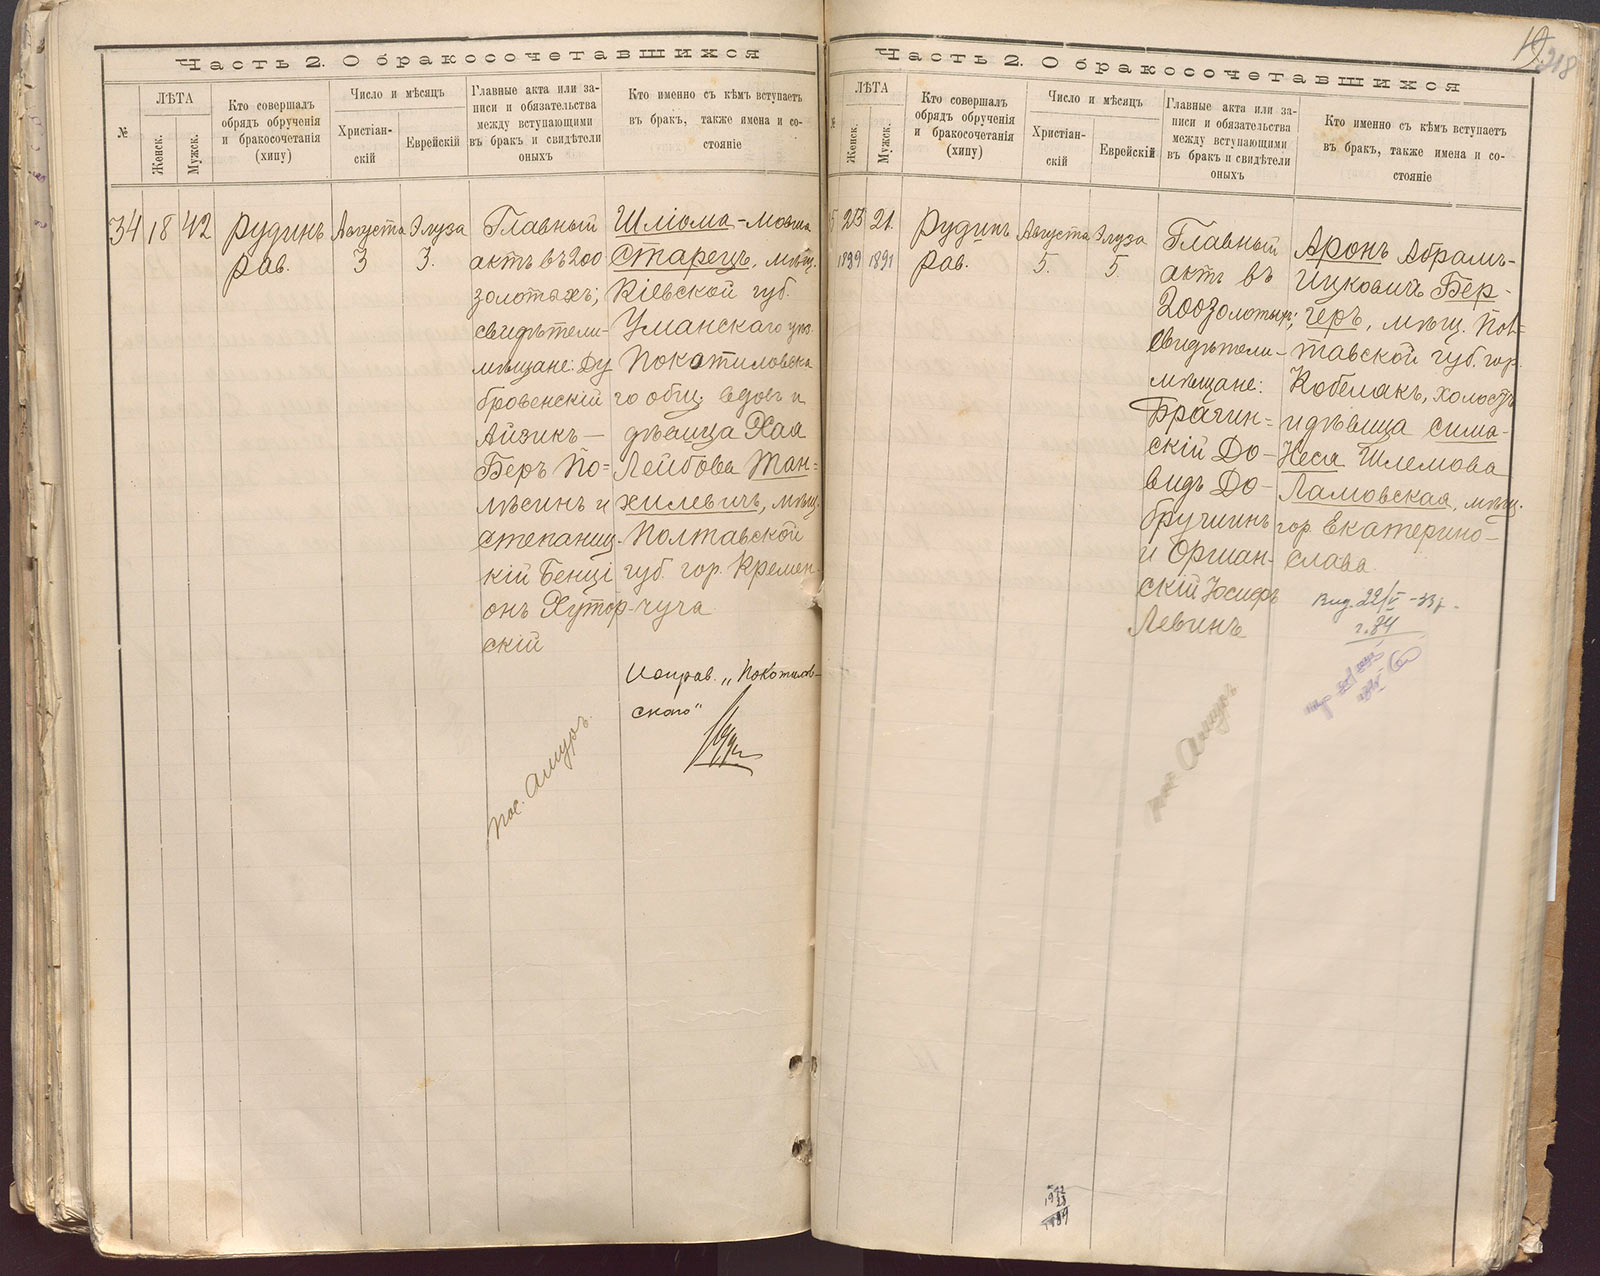 Часть 2. О бракосочетавшихся
№
ЛѢТА
Женск.
Мужск.
Кто совершалъ
обрядъ обрученія
и бракосочетанія
(хипу)
Число и мѣсяцъ
Христіан-
скій
Еврейскій
Главные акта или за-
писи и обязательства
между вступающими
въ бракъ и свидѣтели
оныхъ
Кто именно съ кѣмъ вступаетъ
въ бракъ, также имена и со-
стояніе
34
18
42
Рудинъ
рав.
Августа
3
Элуза
3.
Главный
актъ въ 200
золотахъ;
свидѣтели-
мѣщане: Ду
бровенскій
Айзикъ —
Беръ По=
лѣсинъ и
Степанищ-
кій Бенці
онъ Хутор-
скій
Шліома-Мовша
Старецъ, мѣщ.
Кіевской губ.
Уманскаго уѣз.
Покотиловска
го общ. вдовъ и
дѣвица Хая
Лейбова Тан=
хилевичъ, мѣщ.
Полтавской
губ. гор. Кремен-
чуча
Исправ. „Покотилов-
скаго"
пос. Амуръ.
Часть 2. О бракосочетавшихся
19
218
№
ЛѢТА
Женск.
Мужск.
Кто совершалъ
обрядъ обрученія
и бракосочетанія
(хипу)
Число и мѣсяцъ
Христіан-
скій
Еврейскій
Главные акта или за-
писи и обязательства
между вступающими
въ бракъ и свидѣтели
оныхъ
Кто именно съ кѣмъ вступаетъ
въ бракъ, также имена и со-
стояніе
5
23
1889
21.
1891
Рудинъ
рав.
Августа
5.
Элуза
5.
Главный
актъ въ
200 золотыхъ;
Свидѣтели-
мѣщане:
Брагин-
скій До-
видъ До-
бручинъ
и Оршан-
скій Іосифъ
Левинъ
Аронъ Абрамъ-
Ицковичъ Бер-
геръ, мѣщ. Пол=
тавской губ. гор.
Кобелакъ, холостъ
и дѣвица Сима-
Неся Шлемова
Ламовская, мѣщ.
гор. Екатерино-
слава.
Вид. 22/V -33 г.
г. 84
пос. Амуръ
1912
23
1889